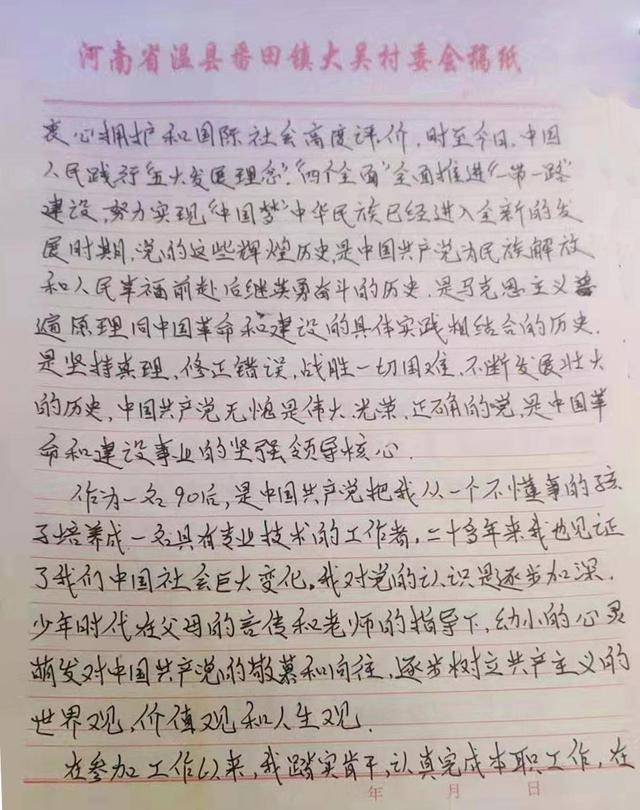 河南省温县番田镇大吴村委会稿纸
衷心拥护和国际社会高度评价,时至今日,中国
人民践行“五大发展理念”,“四个全面”全面推进“一带一路”
建设,努力实现“中国梦”中华民族已经进入全新的发
展时期,党的这些辉煌历史,是中国共产党为民族解放
和人民幸福前赴后继英勇奋斗的历史,是马克思主义普
遍原理同中国革命和建设的具体实践相结合的历史,
是坚持真理,修正错误,战胜一切困难,不断发展壮大
的历史,中国共产党无愧是伟大、光荣、正确的党,是中国革
命和建设事业的坚强领导核心.
作为一名90后,是中国共产党把我从一个不懂事的孩
子培养成一名具有专业技术的工作者,二十多年来我也见证
了我们中国社会巨大变化.我对党的认识是逐步加深.
少年时代在父母的言传和老师的指导下,幼小的心灵
萌发对中国共产党的敬慕和向往,逐步树立共产主义的
世界观,价值观和人生观.
在参加工作以来,我踏实肯干,认真完成本职工作,在
年 月 日